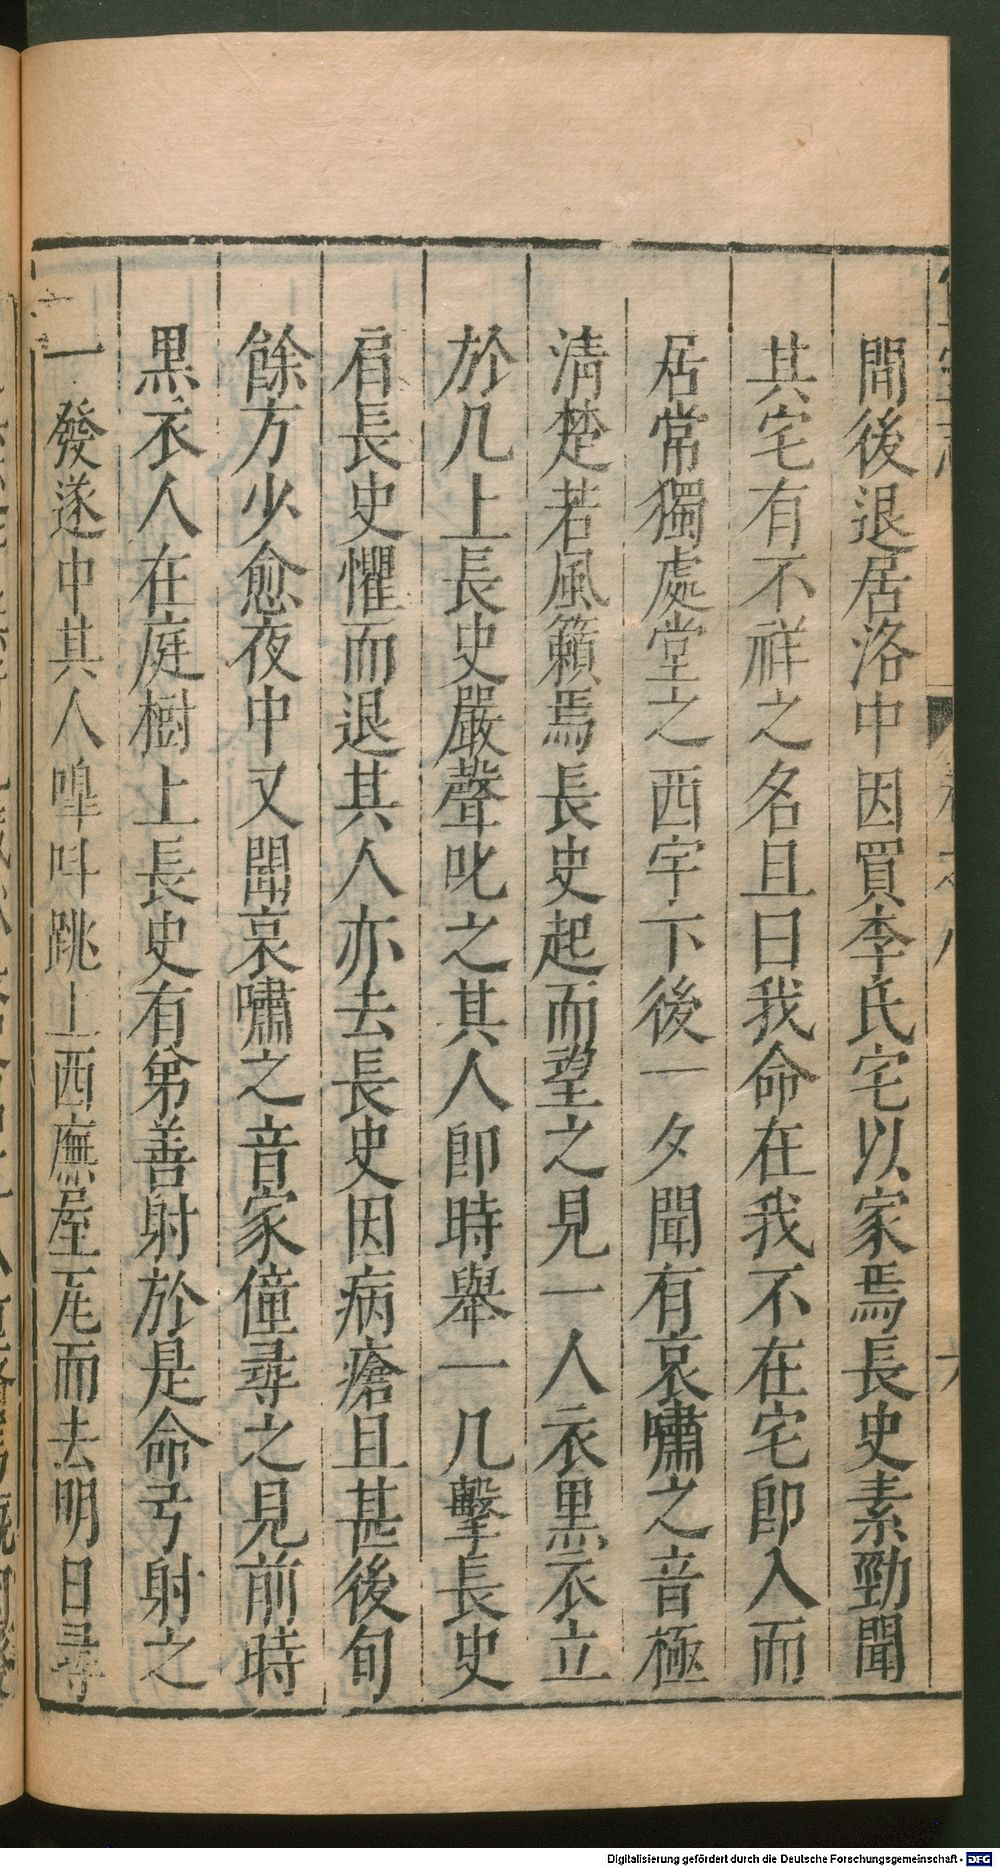 間後退居洛中因買李氏宅以家焉長史素勁聞
其宅有不祥之名且曰我命在我不在宅卽入而
居常獨處堂之西宇下後一夕聞有哀嘯之音極
淸楚若風籟焉長史起而望之見一人衣黒衣立
於几上長史嚴聲叱之其人卽時舉一几擊長史
肩長史懼而退其人亦去長史因病瘡且甚後旬
餘方少愈夜中又聞哀嘯之音家僮尋之見前時
黒衣人在庭樹上長史有弟善射於是命弓射之
一發遂中其人嘷呌跳上西廡屋瓦而去明日尋
Digitalisierung gefördert durch die Deutsche Forschungsgemeinschaft - DFG